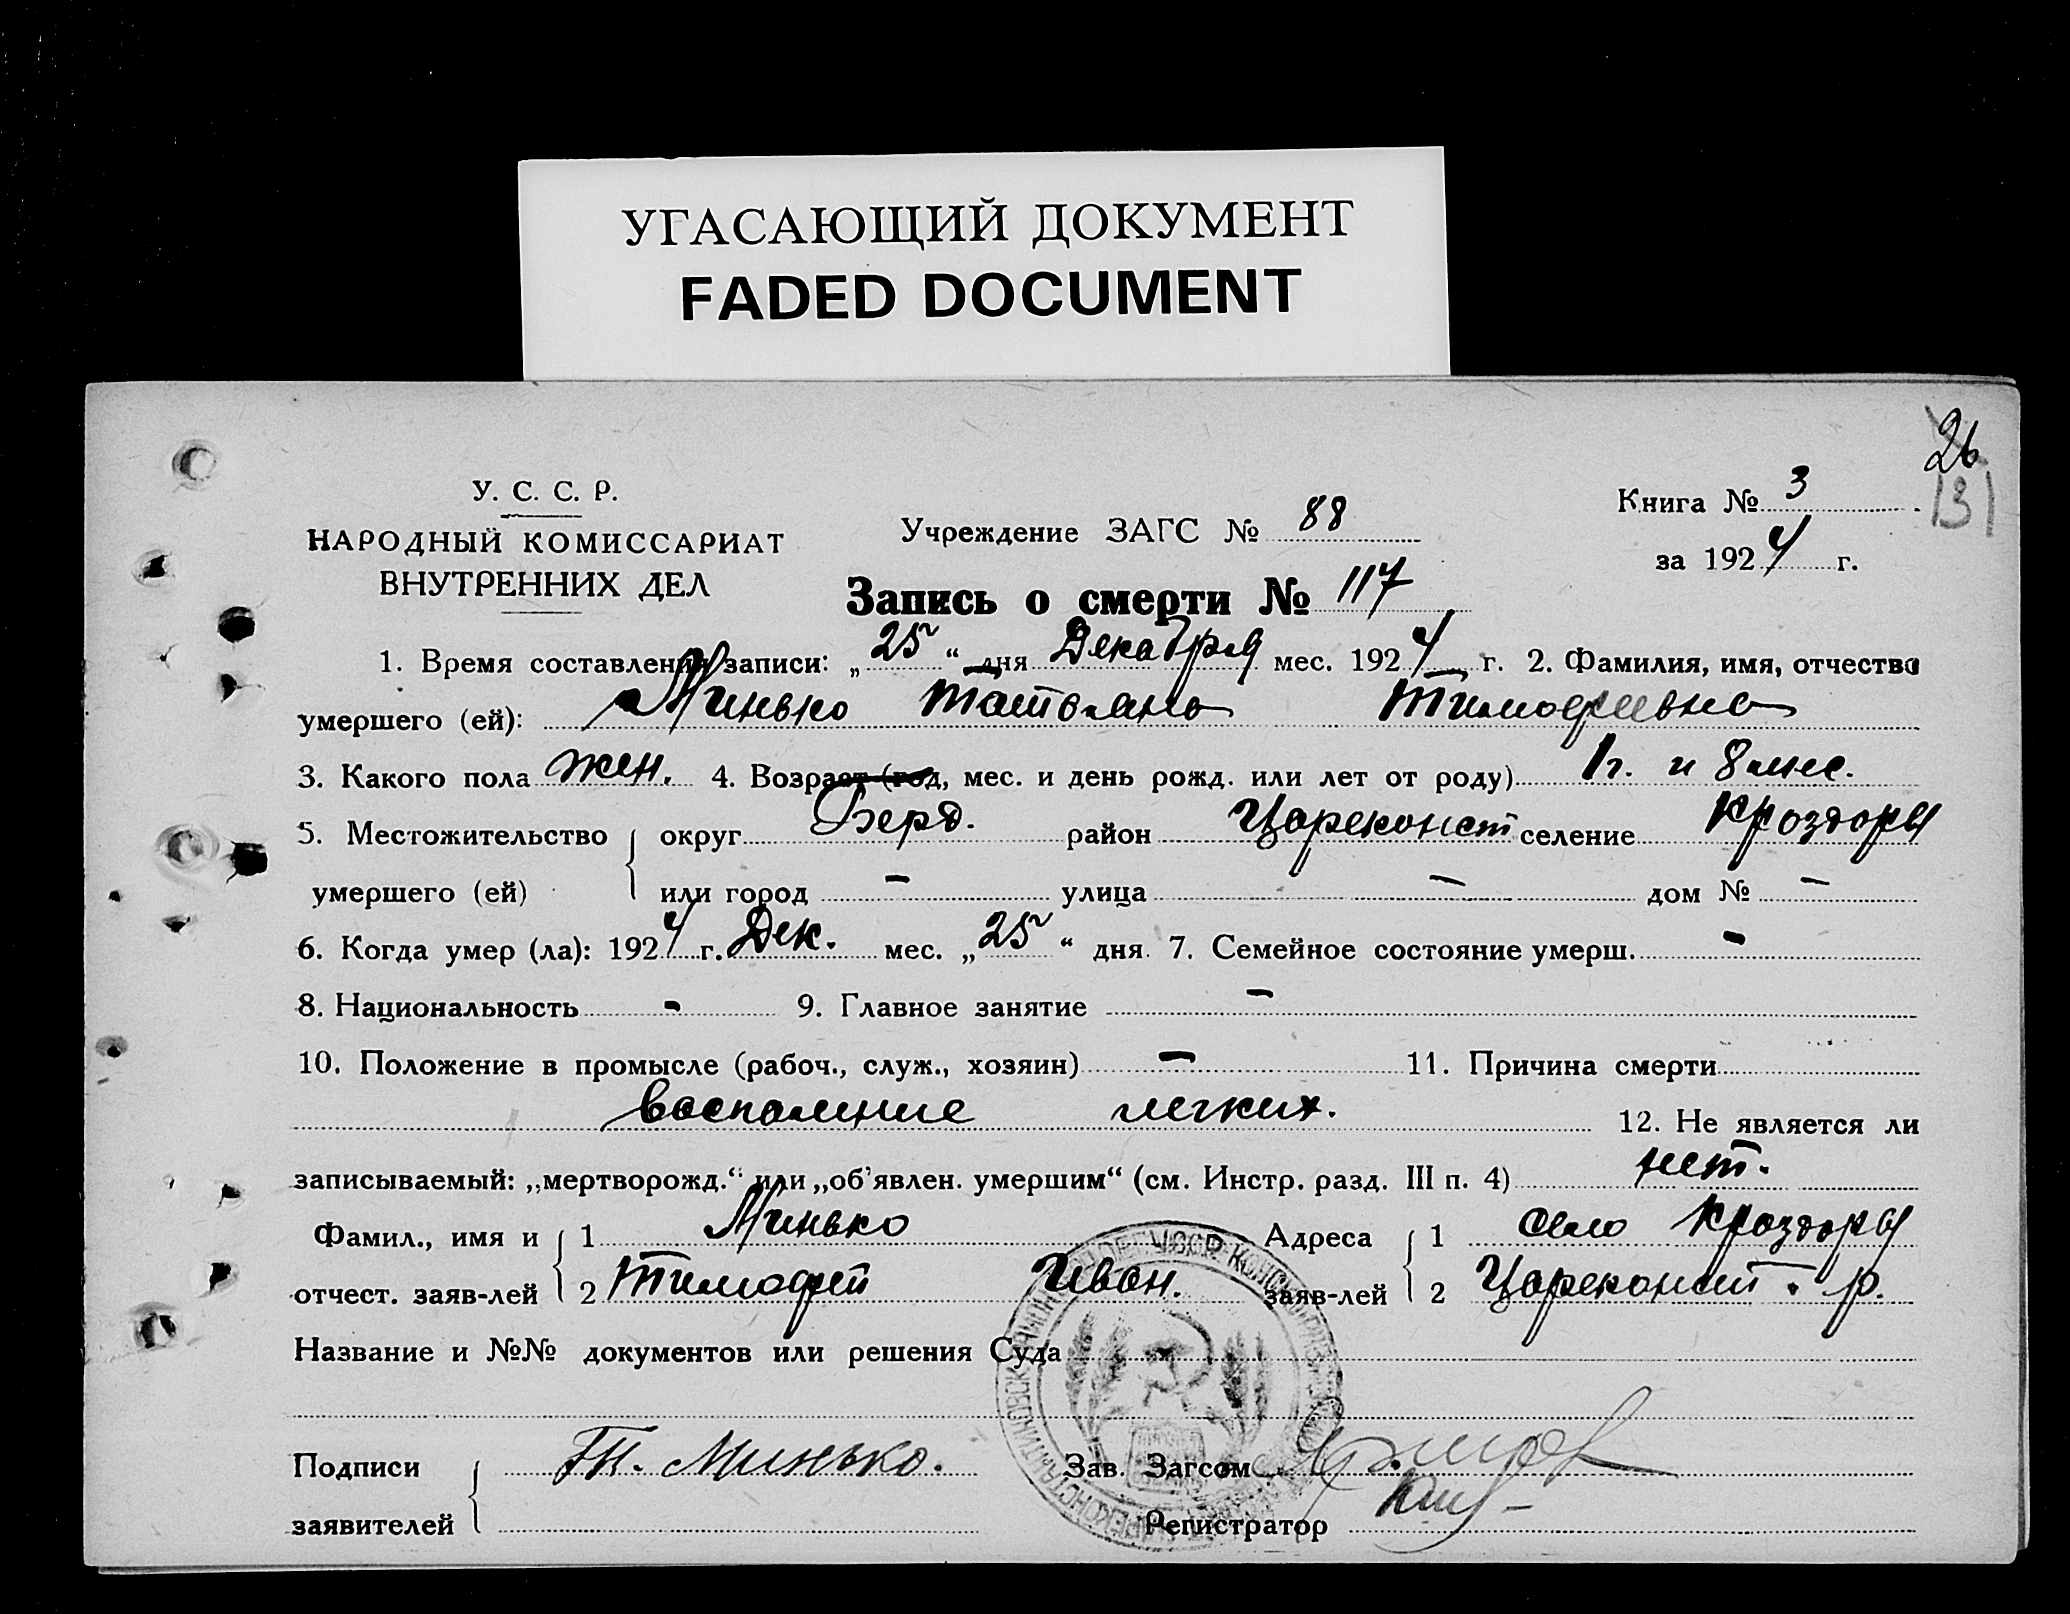 УГАСАЮЩИЙ ДОКУМЕНТ
FADED DOCUMENT
26
131
У. С. С. Р.
НАРОДНЫЙ КОМИССАРИАТ
ВНУТРЕННИХ ДЕЛ
Учреждение ЗАГС № 88
Книга № 3
за 1924 г.
Запись о смерти № 117
1. Время составления записи: „25“ дня Декабря мес. 1924 г. 2. Фамилия, имя, отчество
умершего (ей): Минько Татьяна Тимофеевна
3. Какого пола жен. 4. Возраст (год, мес. и день рожд. или лет от роду) 1 г. и 8 мес.
5. Местожительство округ Берд. район Цареконст селение Кроздоры
умершего (ей) или город – улица – дом № –
6. Когда умер (ла): 1924 г. Дек. мес. „25“ дня. 7. Семейное состояние умерш. -
8. Национальность - 9. Главное занятие –
10. Положение в промысле (рабоч., служ., хозяин) – 11. Причина смерти
воспаление легких. 12. Не является ли
записываемый: „мертворожд.“ или „об'явлен. умершим“ (см. Инстр. разд. III п. 4) нет.
Фамил., имя и 1 Минько Адреса 1 село Кроздоры
отчест. заяв-лей 2 Тимофей Иван. заяв-лей 2 Цареконст. р.
Название и №№ документов или решения Суда
Подписи Тм. Минько. Зав. Загсом
заявителей Регистратор